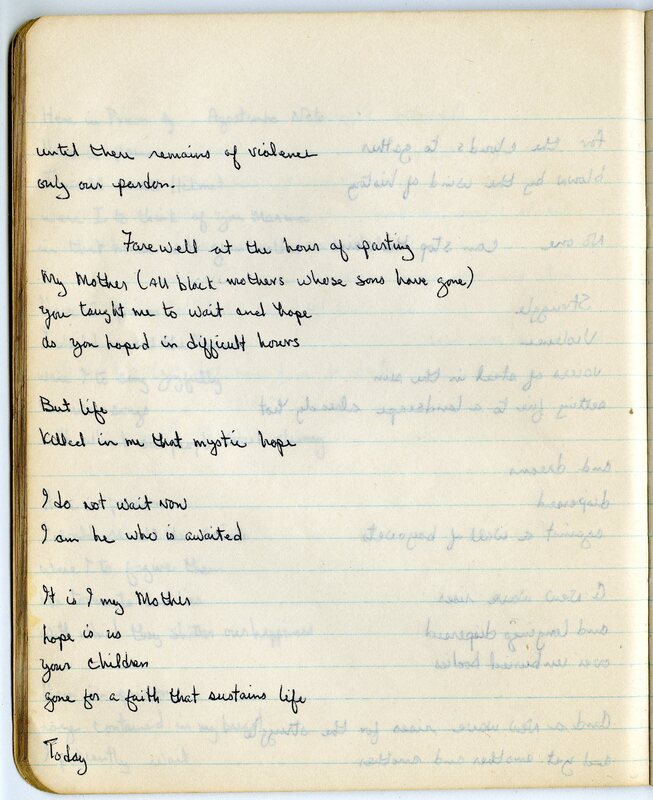 until there remains of violence
only our pardon.
Farewell at the hour of parting
My Mother (All black mothers whose sons have gone)
you taught me to wait and hope
as you hoped in difficult hours
But life
Killed in me that mystic hope
I do not wait now
I am he who is awaited
It is I my Mother
hope is us
your children
gone for a faith that sustains life
Today